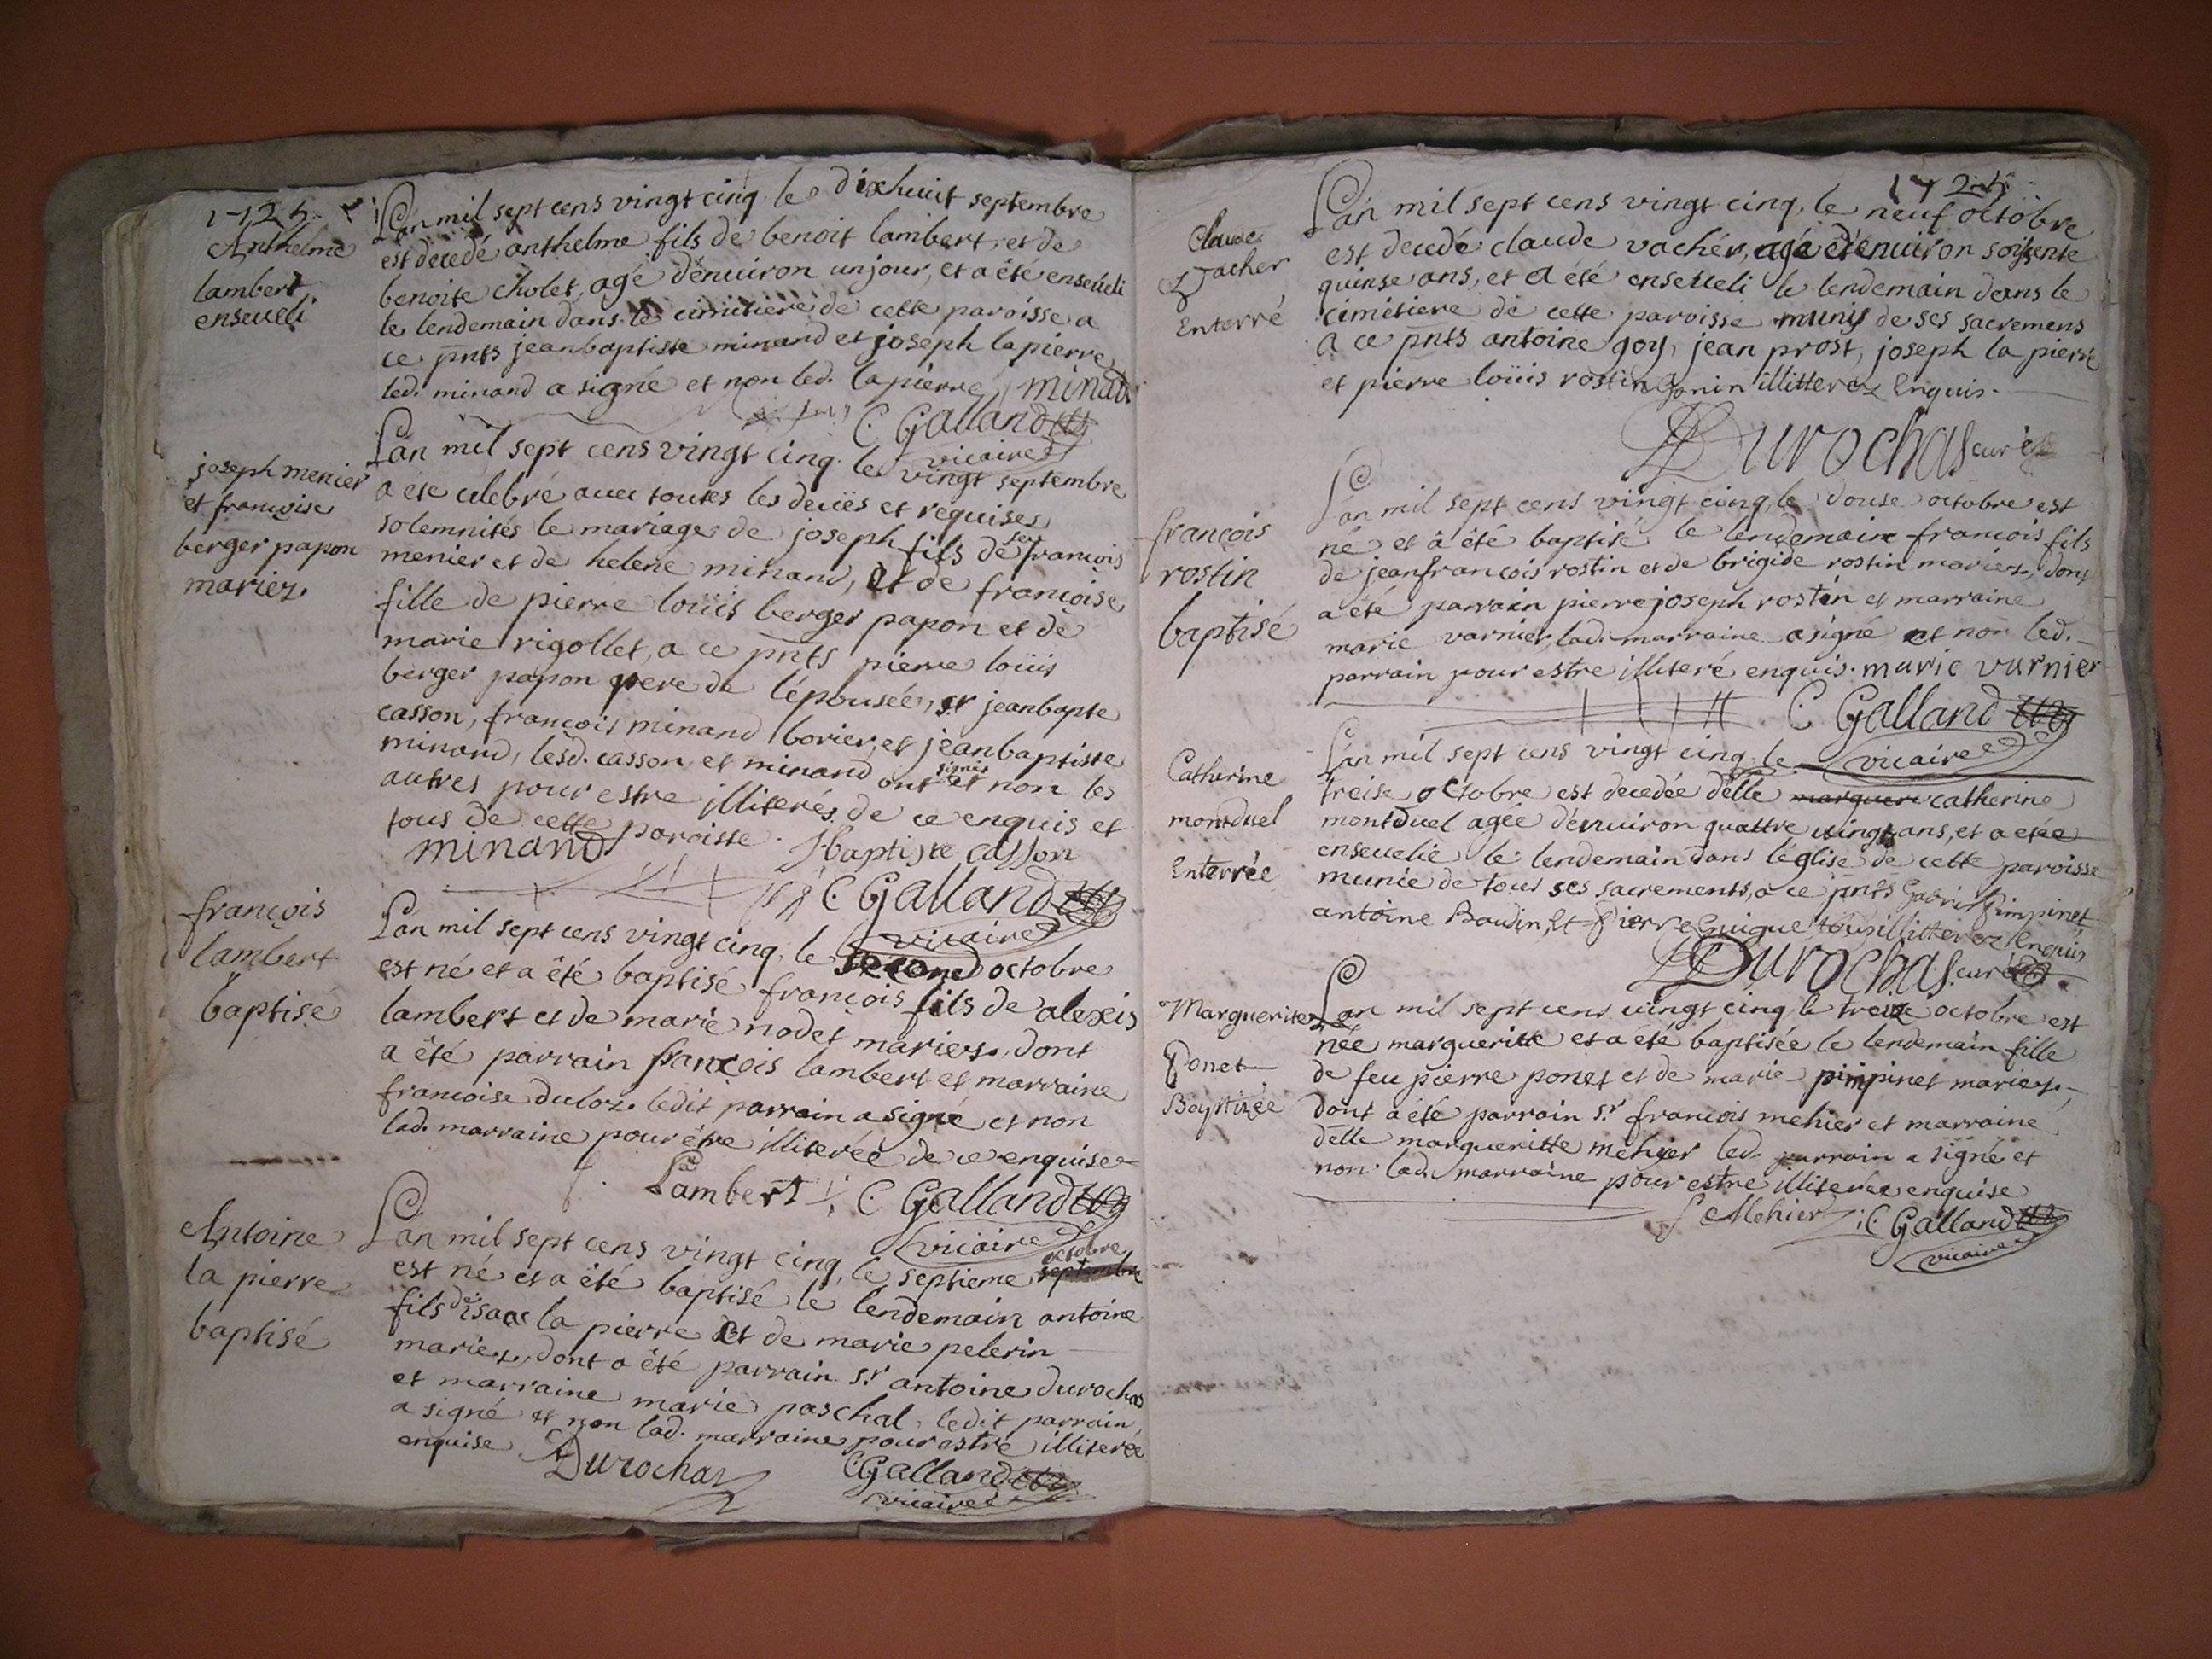 1725
Anthelme
lambert
enseveli
L'an mil sept cens vingt cinq le dixhuit septembre
est decedé anthelme fils de benoit lambert, et de
benoite cholet, agé d'enuiron un jour, et a été enseueli
le lendemain dans le cimitiere de cette paroisse a
ce pnts jeanbaptiste minand et joseph la pierre
led. minand a signé et non led. lapierre minand
C. Galland
vicaire
joseph menier
et francoise
berger papon
mariez
L'an mil sept cens vingt cinq le vingt septembre
a été célebré avec toutes les deües et requises
solemnités le mariage de joseph fils de feu francois
menier et de helene minand, et de francoise
fille de pierre loüis berger papon et de
marie rigollet, a ce pnts pierre loüis
berger papon pere de l'épousée, sr jeanbapte
casson, francois minand borier, et jeanbaptiste
minand, lesd. casson et minand ont signés et non les
autres pour estre illiterés de ce enquis et
tous de cette paroisse.
minand Jbaptiste casson
C. Galland
vicaire
françois
lambert
baptisé
L'an mil sept cens vingt cinq, le second octobre
est né et a été baptisé françois fils de alexis
lambert et de marie nodet mariez, dont
a été parrain françois lambert et marraine
francoise duloz. ledit parrain a signé et non
lad. marraine pour être illiterée de ce enquise
Lambert C. Galland
vicaire
Antoine
la pierre
baptisé
L'an mil sept cens vingt cinq, le septieme septembre octobre
est né et a été baptisé le lendemain antoine
fils de isaac la pierre et de marie pelerin
mariez, dont a été parrain sr antoine durochas
et marraine marie paschal, ledit parrain
a signé et non lad. marraine pour estre illiterée
enquise. Durochas C Galland
vicaire
1725
Claude
Vacher
Enterré
L'an mil sept cens vingt cinq, le neuf octobre
est decedé claude vacher, agé d'enuiron soixente
quinse ans, et a été enseueli le lendemain dans le
cimitiere de cette paroisse munis de ses sacremens
a ce pnts antoine goy, jean prost, joseph la pierre
et pierre loüis rostin gonin illitterez Enquis.
Durochas curé
françois
rostin
baptisé
L'an mil sept cens vingt cinq, le douse octobre est
né et a été baptisé le lendemain francois fils
de jeanfrancois rostin et de brigide rostin mariez, dont
a été parrain pierre joseph rostin et marraine
marie varnier, lad. marraine a signé et non led.
parrain pour estre illiteré enquis. marie varnier
C Galland
vicaire
Catherine
montduel
Enterrée
L'an mil sept cens vingt cinq le
treise octobre est decedée delle catherine
montduel agée d'enuiron quattre uingt ans, et a etée
enseuelie le lendemain dans l'église de cette paroisse
munie de tous ses sacrements, a ce pnts Gabriel pimpinet
antoine Baudin, Et pierre Guigue tous illitterez Enquis
Durochas curé
Marguerite
Ponet
Baptizée
L'an mil sept cens uingt cinq le treze octobre est
née margueritte et a été baptisée le lendemain fille
de feu pierre ponet et de marie pimpinet mariez,
dont a été parrain sr francois mehier et marraine
delle margueritte mehier led. parrain a signé et
non lad. marraine pour estre illiterée enquise
f Mehier C. Galland
vicaire